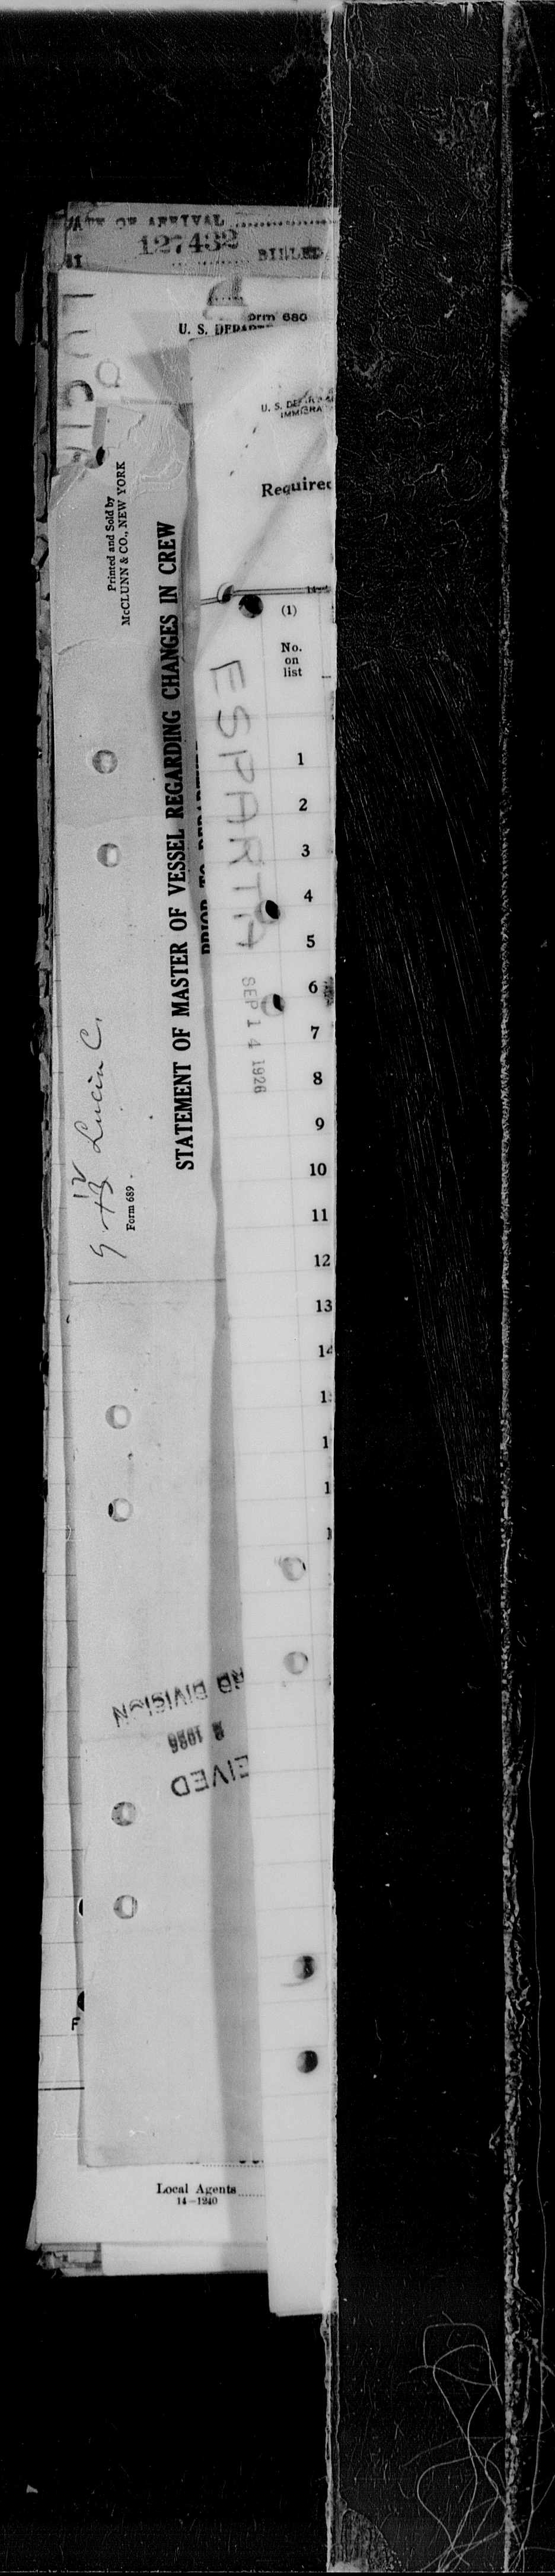 DATE OF ARRIVAL
127432
BILLED
LUCIA
Form 680
U. S. DEPART
U. S. DEPAR
IMMIGRA
Required
Printed and Sold by
McCLUNN & CO., NEW YORK
STATEMENT OF MASTER OF VESSEL REGARDING CHANGES IN CREW
PRIOR TO DEPARTURE
Lucia C.
Form 689
ESPARTA
SEP 14 1926
(1)
No.
on
list
1
2
3
4
5
6
7
8
9
10
11
12
13
14
1
1
1
1
EIVED
2 1926
RD DIVISION
F
Local Agents
14-1240